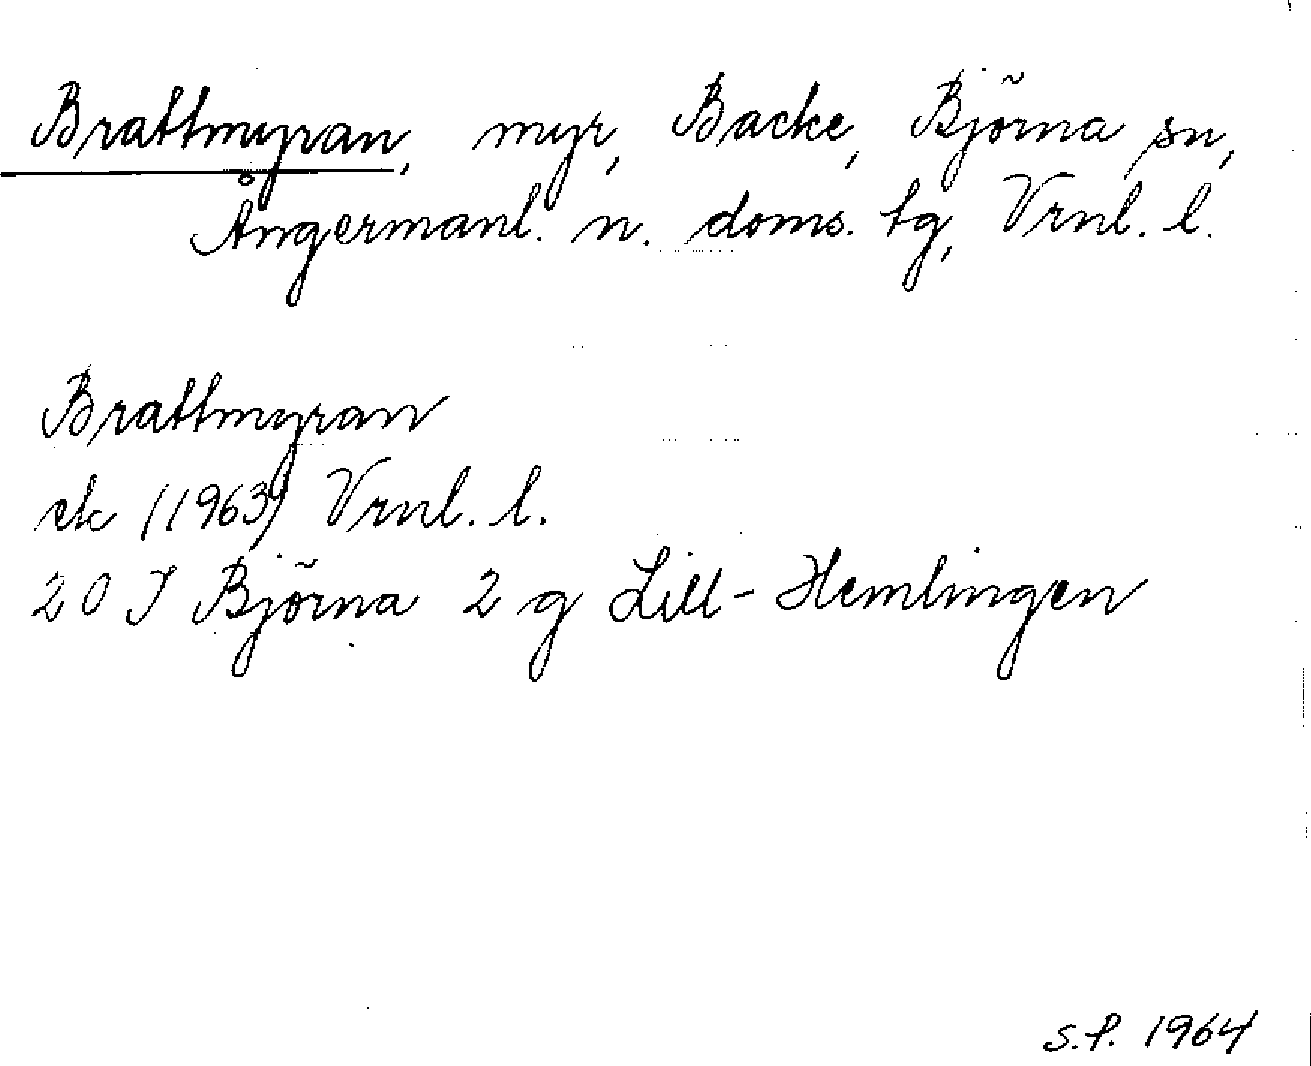 Brattmyran, myr, Backe, Björna sn,
Ångermanl. n. doms. tg, Vrnl. l.
Brattmyran
ek (1963) Vrnl. l.
20 I Björna 2 g Lill-Hemlingen
S.P. 1964